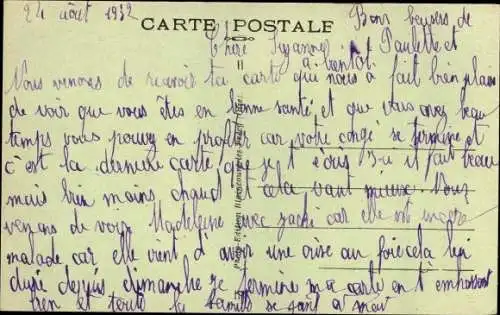 24 août 1932
CARTE POSTALE
Bons baisers de
Paulette et
Chère Suzanne
à bientôt
Nous venons de recevoir ta carte qui nous a fait bien plaisir
de voir que vous êtes en bonne santé et que vous avez beau
temps vous pouvez en profiter car votre congé se termine et
c'est la dernière carte que je t'écris Ici il fait beau
mais bien moins chaud cela vaut mieux. Nous
venons de voir Madeleine avec car elle est encore
malade car elle vient d'avoir une crise au foie cela lui
dure depuis dimanche je termine ma carte en t'embrassant
bien et toute la famille